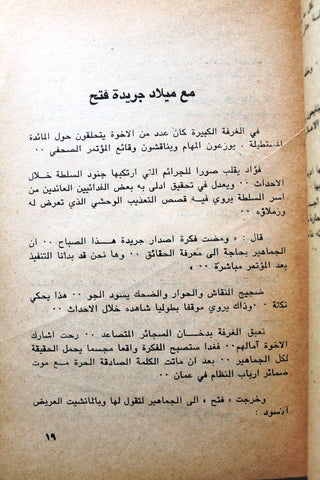 مع ميلاد جريدة فتح
في الغرفة الكبيرة كان عدد من الاخوة يتحلقون حول المائدة
المستطيلة ، يوزعون المهام ويناقشون وقائع المؤتمر الصحفي ٠٠
فؤاد يقلب صورا للجرائم التي ارتكبها جنود السلطة خلال
الاحداث ٠٠ ويعدل في تحقيق ادلى به بعض الفدائيين العائدين من
اسر السلطة يروي فيه قصص التعذيب الوحشي الذي تعرض له
ورملاؤه ٠
قال : « ومضت فكرة اصدار جريدة هذا الصباح ٠٠ ان
الجماهير بحاجة الى معرفة الحقائق ٠٠ وها نحن قد بدأنا التنفيذ
بعد المؤتمر مباشرة ٠٠ »
ضجيج النقاش والحوار والضحك يسود الجو ٠٠ هذا يحكي
نكتة ٠ وذاك يروي موقفا بطوليا شاهده خلال الاحداث ٠٠
نعبق الغرفة بدخان السجائر المتصاعد ٠٠ رحت اشارك
الاخوة آمالهم ٠ فغدا ستصبح الفكرة واقعا مجسما يحمل الحقيقة
لكل الجماهير ٠٠ بعد ان ماتت الكلمة الصادقة الحرة مع موت
ضمائر ارباب النظام في عمان ٠٠
وخرجت « فتح » الى الجماهير لتقول لها وبالمانشيت العريض
الاسود :
١٩